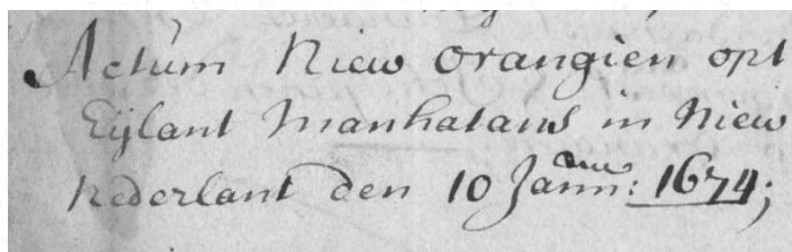 Actum Niew orangien opt
Eijlant Manhatans in Niew
Nederlant den 10 Jannu: 1674;